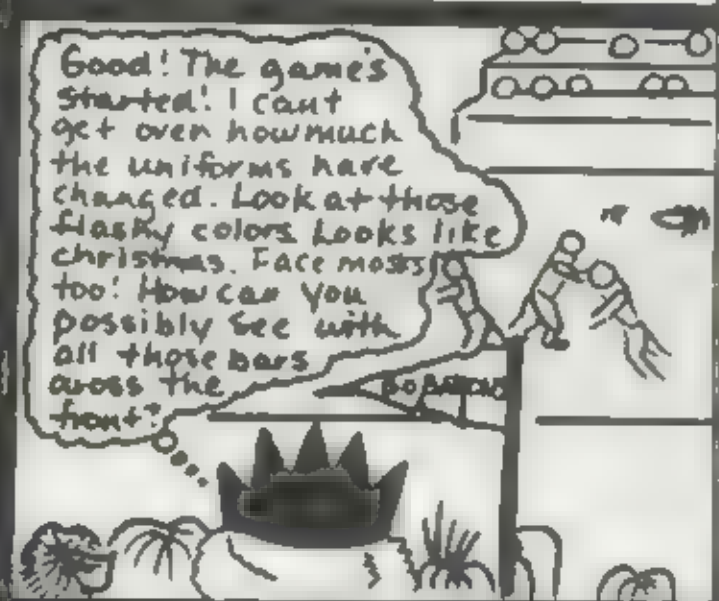 Good! The game's
started! I can't
get over how much
the uniforms have
changed. Look at those
flashy colors Looks like
christmas. Face masks
too! How can you
possibly see with
all those bars
across the
front?